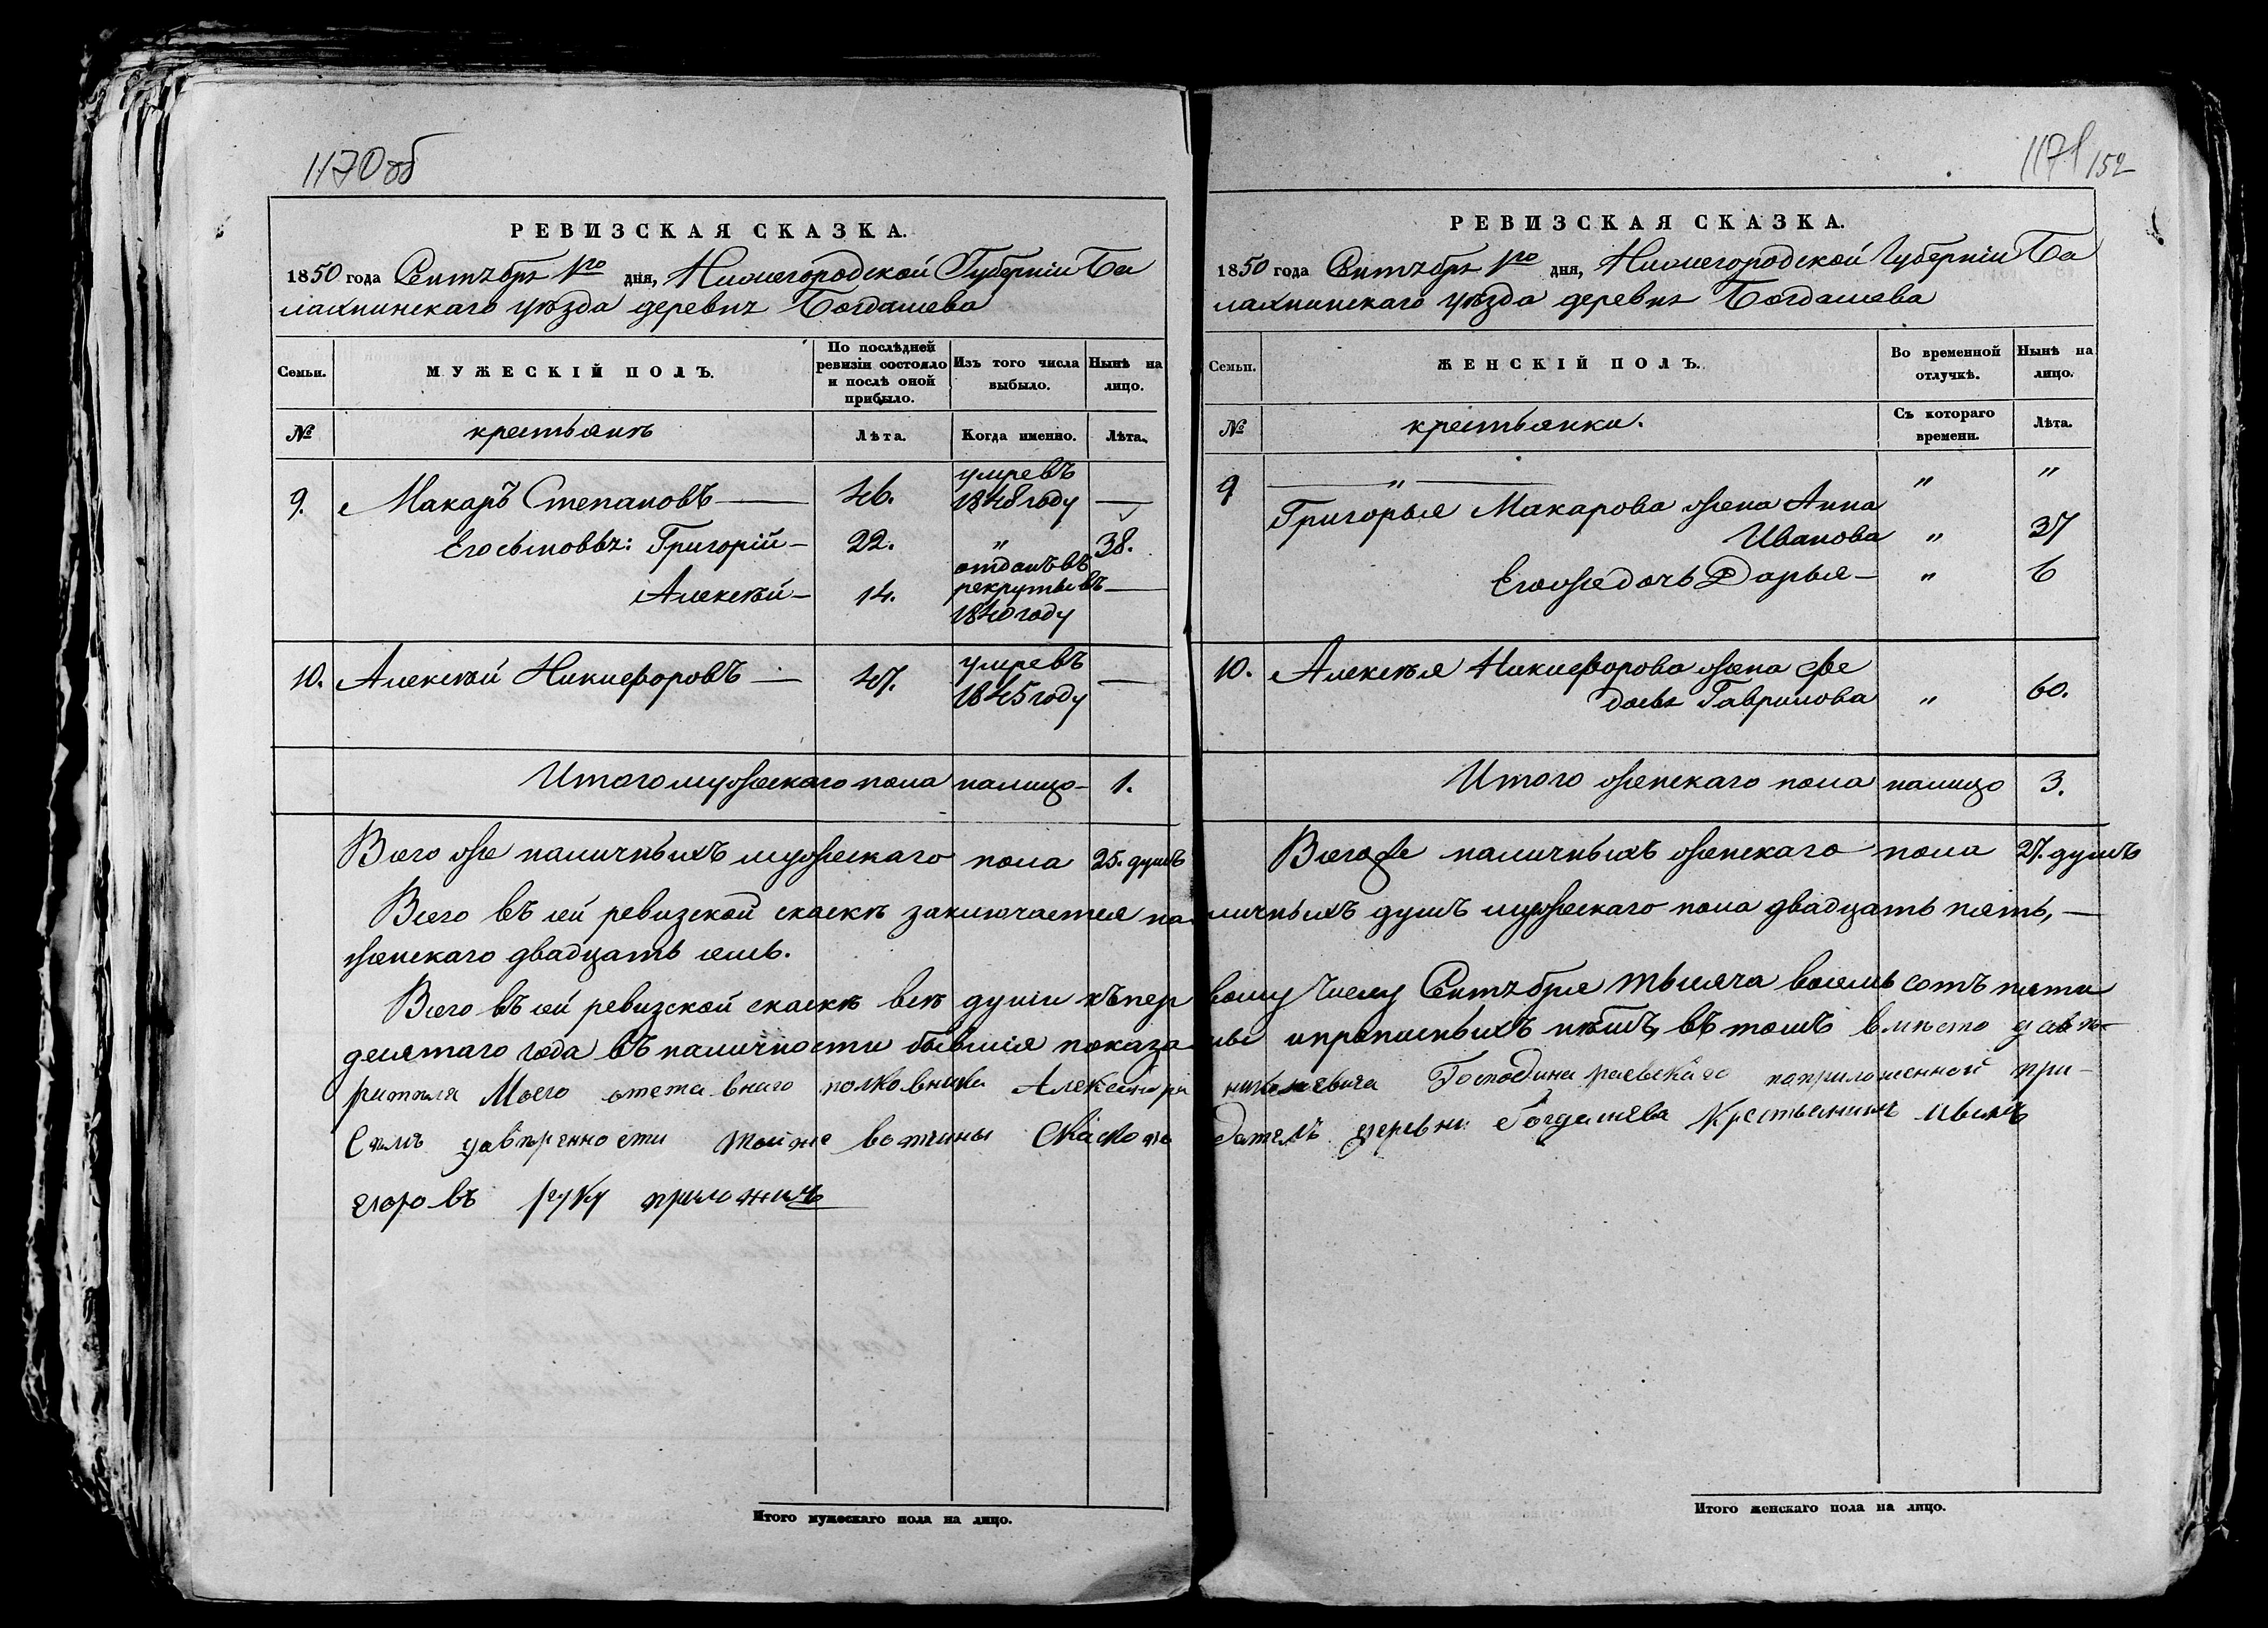 1170об
РЕВИЗСКАЯ СКАЗКА.
1850 года Сентября 1го дня, Нижегородской Губерніи Ба
лахнинскаго уѣзда деревня Богдашева
Семьи. МУЖЕСКІЙ ПОЛЪ. По послѣдней ревизіи состояло и послѣ оной прибыло. Изъ того числа выбыло. Нынѣ на лицо.
№ крестьянъ Лѣта. Когда именно. Лѣта.
9. Макаръ Степановъ — 46. умревъ 1848 году —
Его сыновья: Григорій — 22. " 38.
Алексѣй — 14. отданъ въ рекруты въ 1840 году —
10. Алексѣй Никифоровъ — 47. умревъ 1845 году —
Итого мужескаго пола налицо — 1.
Всего же наличныхъ мужескаго пола 25. душъ
1171 152
РЕВИЗСКАЯ СКАЗКА.
1850 года Сентября 1го дня, Нижегородской Губерніи Ба
лахнинскаго уѣзда деревня Богдашева
Семьи. ЖЕНСКІЙ ПОЛЪ. Во временной отлучкѣ. Нынѣ на лицо.
№ крестьянки. Съ котораго времени. Лѣта.
9 — " — " "
Григорья Макарова жена Анна
Иванова " 37
Его же дочь Дарья — " 6
10. Алексѣя Никифорова жена Ѳе
досья Гаврилова " 60.
Итого женскаго пола налицо 3.
Всего же наличныхъ женскаго пола 27. душъ
Всего въ сей ревизской скаскѣ заключается наличныхъ душъ мужескаго пола двадцать пять, —
женскаго двадцать семь.
Всего въ сей ревизской скаскѣ всѣ души къ первому Числу Сентября тысяча восемь сотъ пяти
десятаго года въ наличности бывшія показаны и прописныхъ нѣтъ, въ томъ вместо давѣ
рителя Моего отставнаго полковника Александра николаевича Господина раевскаго поприложенной при
Семъ давѣренности той же вотчины Сказкоподатель деревни богдашева Крестьянинъ иванъ
егоровъ руку приложилъ
Итого мужескаго пола на лицо.
Итого женскаго пола на лицо.